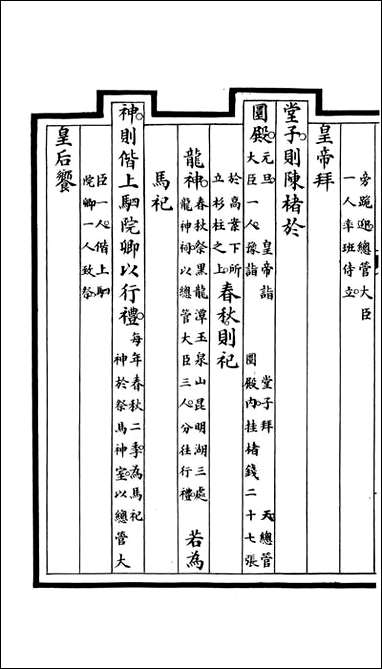 旁跪迎總管大臣
一人率班侍立
皇帝拜
堂子則陳楮於
圜殿
元旦 皇帝詣 堂子拜 天總管
大臣一人豫詣 圜殿內挂楮錢二十七張
於高案下所
立杉柱之上
春秋則祀
龍神
春秋祭黑龍潭玉泉山昆明湖三處
龍神祠以總管大臣三人分往行禮
若為
馬祀
神則偕上駟院卿以行禮
每年春秋二季為馬祀
神於祭馬神室以總管大
臣一人偕上駟
院卿一人致祭
皇后饗